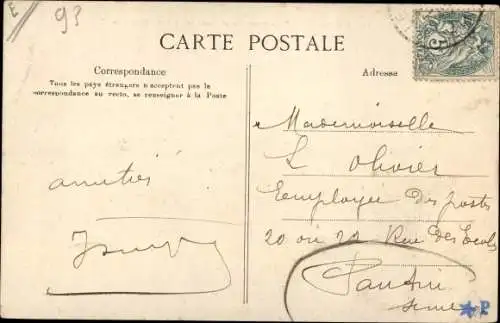 E
93
CARTE POSTALE
Correspondance
Tous les pays étrangers n'acceptent pas la
correspondance au recto, se renseigner à la Poste
Adresse
amitiés
Mademoiselle
L Olivier
Employée des postes
20 ou 22 Rue des Ecoles
Pantin
Seine
P